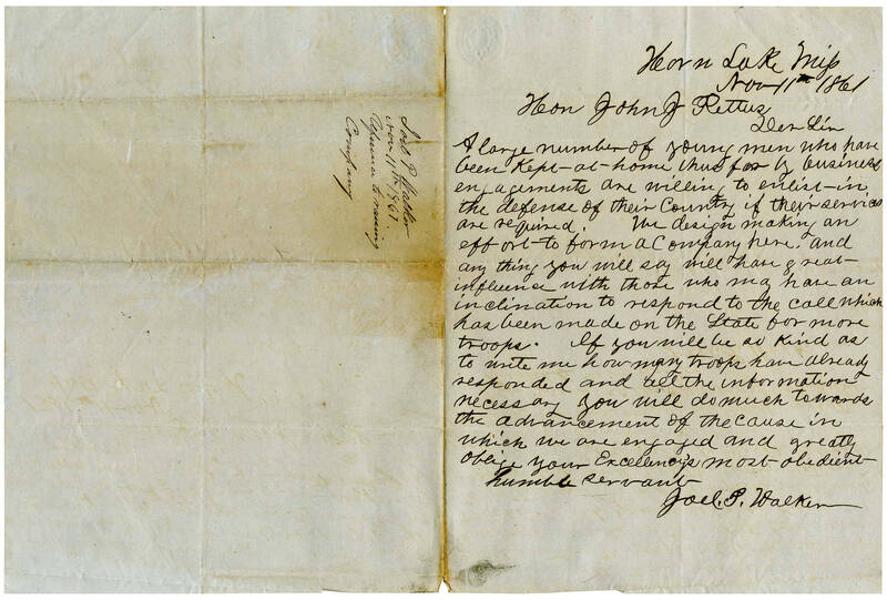 Horn Lake Miss
Nov 11th 1861
Hon John J Pettus
Der Sir
A large number of young men who have
been Kept at home thus far by business
engagements are willing to enlist in
the defense of their Country if their services
are required. We design making an
effort to form a Company here. and
any thing you will say will have great
influence with those who may have an
inclination to respond to the call which
has been made on the State for more
troops. If you will be so Kind as
to write me how many troops have already
responded and all the information
necessary you will do much towards
the advancement of the cause in
which we are engaged and greatly
oblige your Excellency's most obedient
humble servant
Joel. P. Walker
Joel P. Walker
Nov 11th, 1861.
to raising
Company